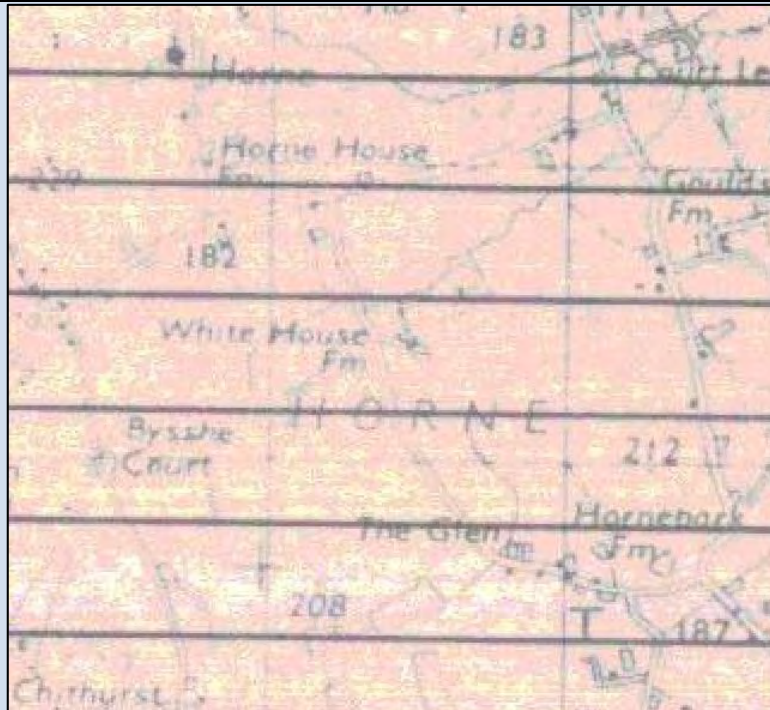 183
Horne
Court Le
Horne House
Fm
229
Fm
182
White House
Fm
HORNE
Bysshe
Court
212
Hornepark
Fm
The Glen
208
T
187
Chithurst